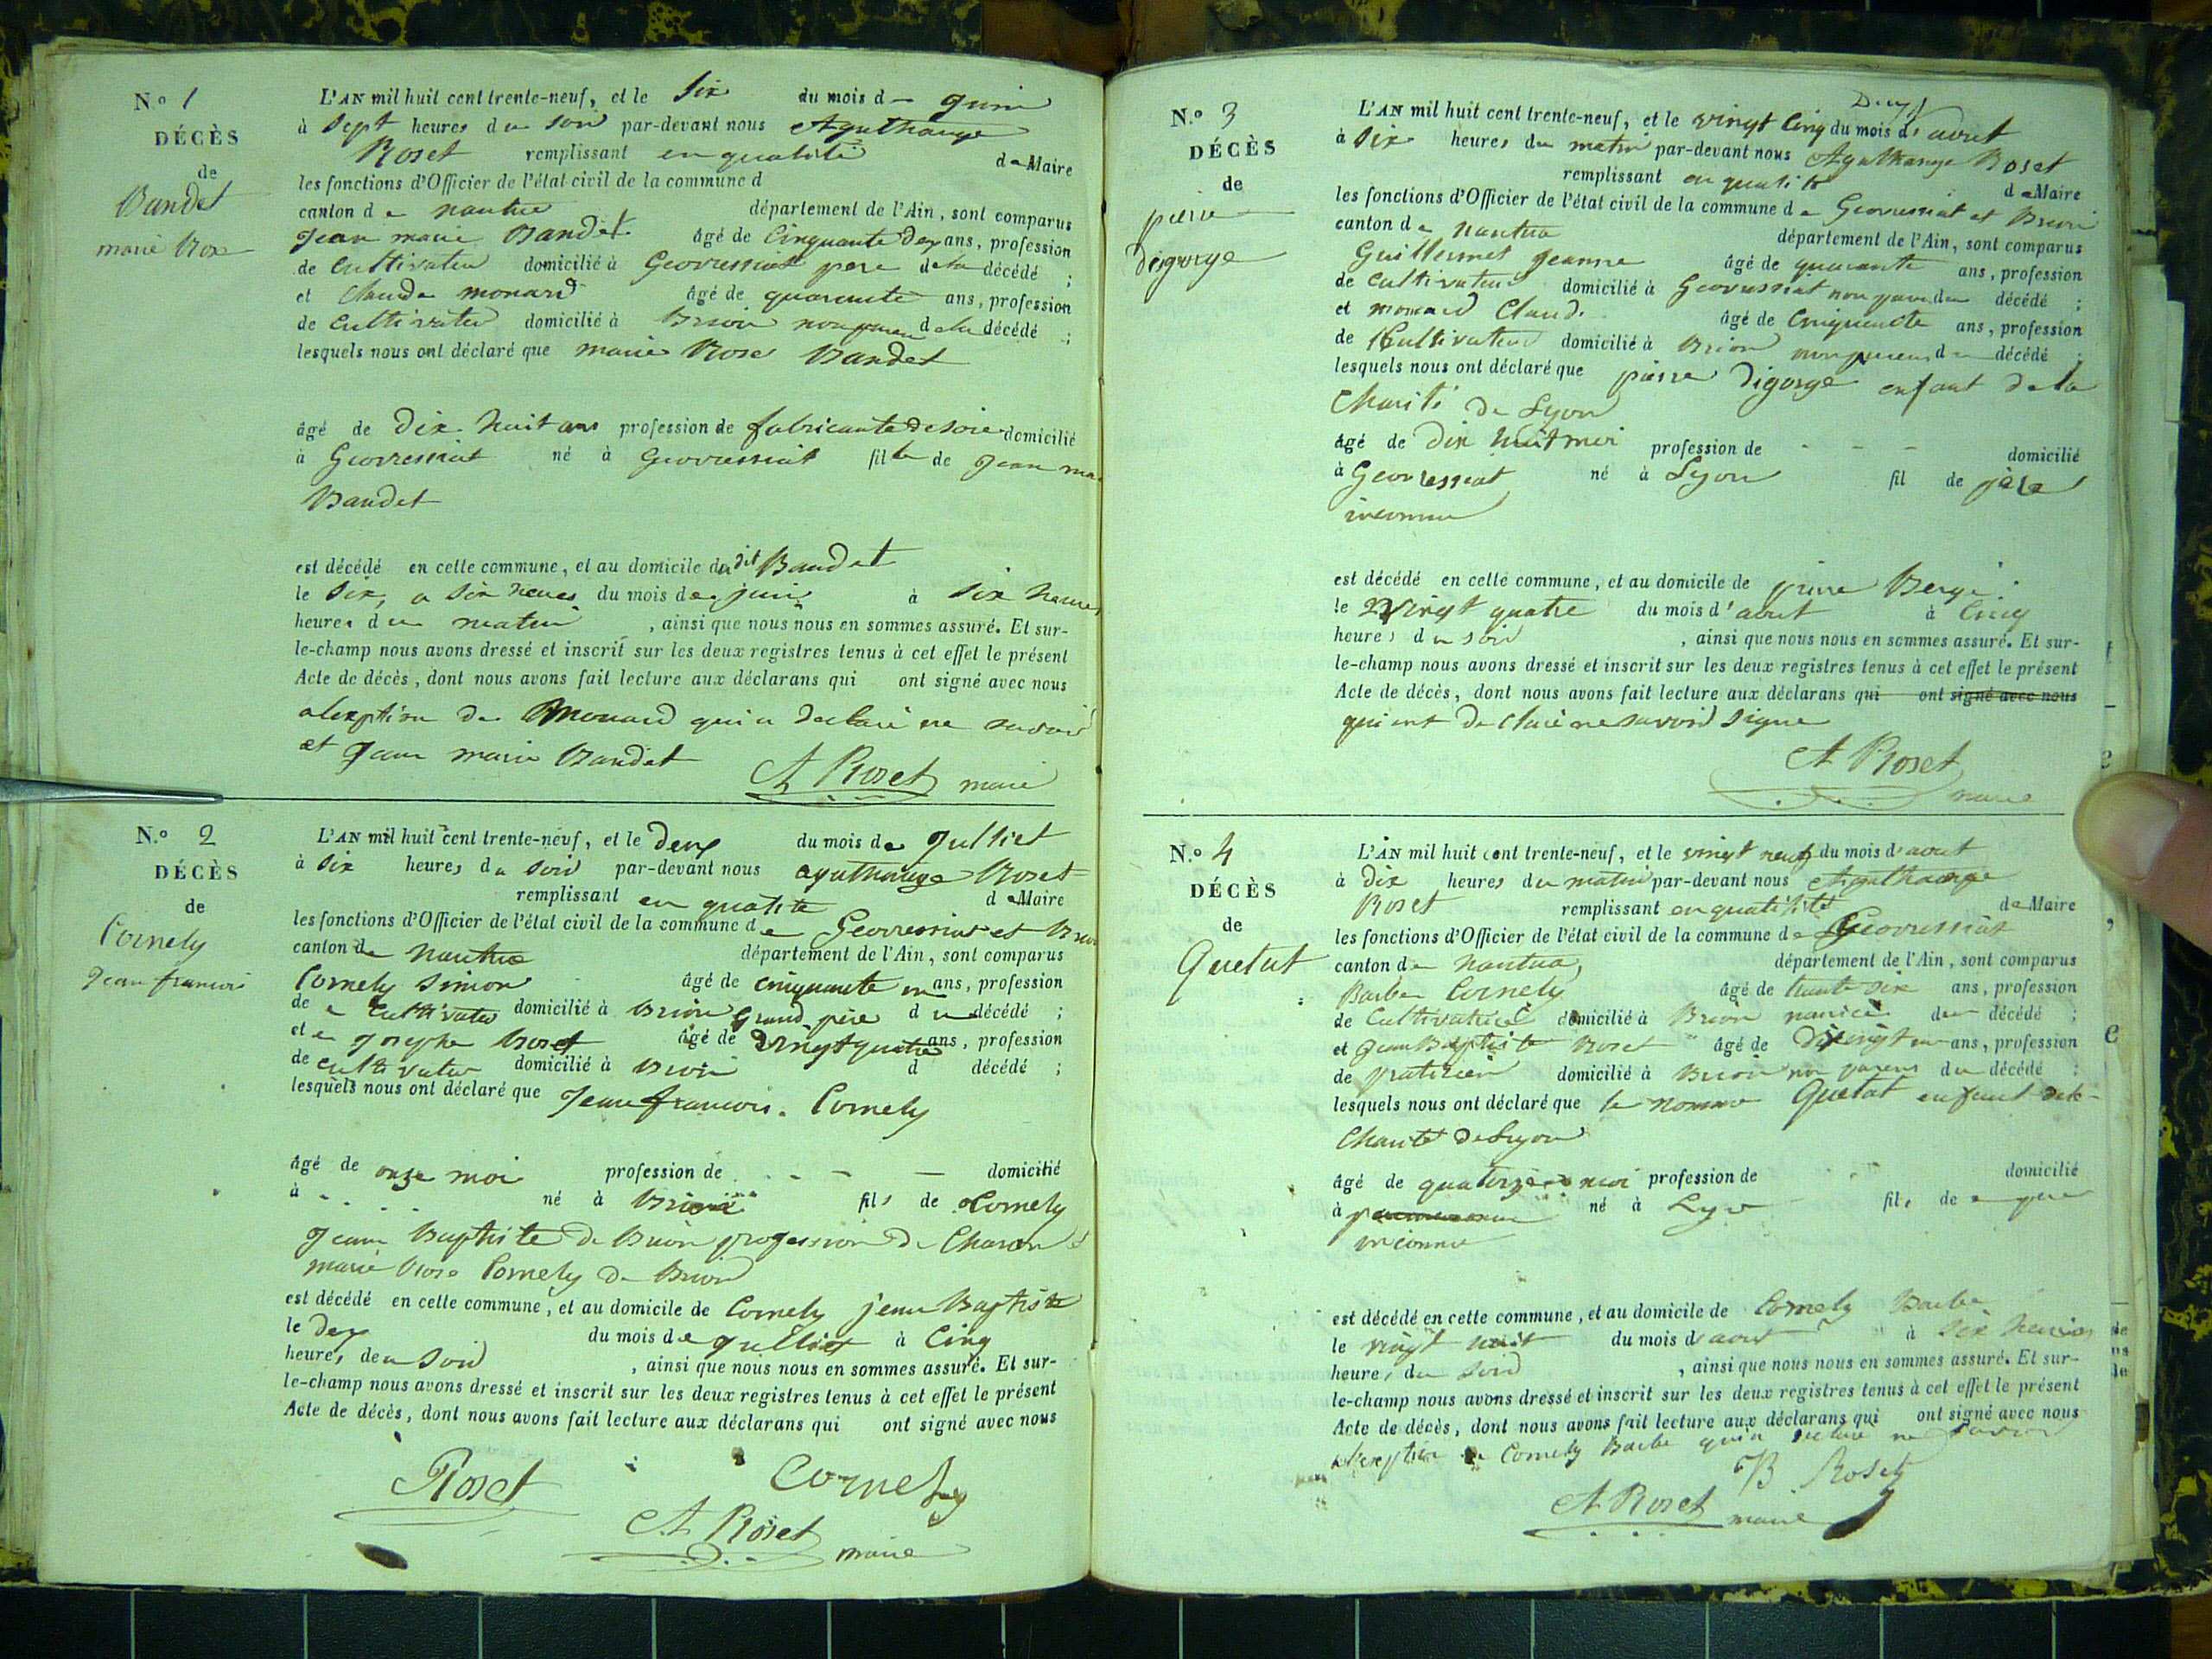 N.o 1
DÉCÈS
de
Bandet
marie Rose
L'AN mil huit cent trente-neuf, et le six du mois d juin
à sept heures du soir par-devant nous Agathange
Roset remplissant en qualité de Maire
les fonctions d'Officier de l'état civil de la commune d
canton de nantua département de l'Ain, sont comparus
Jean marie Bandet âgé de Cinquante dex ans, profession
de Cultivateur domicilié à Geovressiat pere de la décédé ;
et Claude monard âgé de quarente ans, profession
de Cultivateur domicilié à Brion non paren de la décédé ;
lesquels nous ont déclaré que marie Rose Bandet
âgé de Dix huit ans profession de fabricante de soie domicilié
à Geovressiat né à Geovressiat fille de Jean ma
Bandet
est décédé en cette commune, et au domicile du dit Bandet
le six, a six heures du mois de juin à six heures
heures du matin , ainsi que nous nous en sommes assuré. Et sur-
le-champ nous avons dressé et inscrit sur les deux registres tenus à cet effet le présent
Acte de décès, dont nous avons fait lecture aux déclarans qui ont signé avec nous
alexption de Monard qui a declaré ne savoir
et Jean marie Bandet
A Roset maire
N.o 2
DÉCÈS
de
Cornely
Jean francois
L'AN mil huit cent trente-neuf, et le deux du mois de Julliet
à six heures du soir par-devant nous agathange Roset
remplissant en qualité de Maire
les fonctions d'Officier de l'état civil de la commune de Geovressiat et Brion
canton de nantua département de l'Ain, sont comparus
Cornely Simon âgé de cinquante un ans, profession
de Cultivateur domicilié à Brion Grand père du décédé ;
et Josephe Roset âgé de vingt quatre ans, profession
de cultivateur domicilié à Brion d décédé ;
lesquels nous ont déclaré que Jean francois. Cornely
âgé de onze moi profession de - - - domicilié
à - - né à Brion fils de Cornely
Jean Baptiste de Brion profession de Charon et
marie Rose Cornely de Brion
est décédé en cette commune, et au domicile de Cornely jean Baptiste
le dex du mois de julliet à Cinq
heures du soir , ainsi que nous nous en sommes assuré. Et sur-
le-champ nous avons dressé et inscrit sur les deux registres tenus à cet effet le présent
Acte de décès, dont nous avons fait lecture aux déclarans qui ont signé avec nous
Roset Cornely
A Roset maire
N.o 3
DÉCÈS
de
pierre
Digorge
L'AN mil huit cent trente-neuf, et le vingt Cinq du mois d'aout
à six heures du matin par-devant nous Agathange Roset
remplissant en qualité de Maire
les fonctions d'Officier de l'état civil de la commune de Geovressiat et Brion
canton de nantua département de l'Ain, sont comparus
Guillermet Jeanne âgé de quarante ans, profession
de Cultivateur domicilié à Geovressiat non paren du décédé ;
et monard Claude âgé de Cinquente ans, profession
de Cultivateur domicilié à Brion non paren du décédé ;
lesquels nous ont déclaré que pierre Digorge enfant de la
Charité de Lyon
âgé de dix huit moi profession de - - - domicilié
à Geovressiat né à Lyon fil de père
inconnu
est décédé en cette commune, et au domicile de
le vingt quatre du mois d'aout à Cinq
heures du soir , ainsi que nous nous en sommes assuré. Et sur-
le-champ nous avons dressé et inscrit sur les deux registres tenus à cet effet le présent
Acte de décès, dont nous avons fait lecture aux déclarans qui ont signé avec nous
qui ont declaré ne savoir signe
A Roset
maire
N.o 4
DÉCÈS
de
Quetat
L'AN mil huit cent trente-neuf, et le vingt neuf du mois d'aout
à dix heures du matin par-devant nous Agathange
Roset remplissant en qualité de Maire
les fonctions d'Officier de l'état civil de la commune de Geovressiat
canton de nantua, département de l'Ain, sont comparus
Barbe Cornely âgé de trante six ans, profession
de Cultivatrice domicilié à Brion nourice du décédé ;
et Jean Baptiste Roset âgé de vingt un ans, profession
de praticien domicilié à Brion non parens du décédé ;
lesquels nous ont déclaré que le nommé Quetat enfant de la
Charité de Lyon
âgé de quatorze moi profession de domicilié
à né à Lyon fils de pere
inconnu
est décédé en cette commune, et au domicile de Cornely Barbe
le vingt huit du mois d'aout à six heures
heures du soir , ainsi que nous nous en sommes assuré. Et sur-
le-champ nous avons dressé et inscrit sur les deux registres tenus à cet effet le présent
Acte de décès, dont nous avons fait lecture aux déclarans qui ont signé avec nous
alexption de Cornely Barbe qui a declaré ne savoir
B Roset
A Roset maire